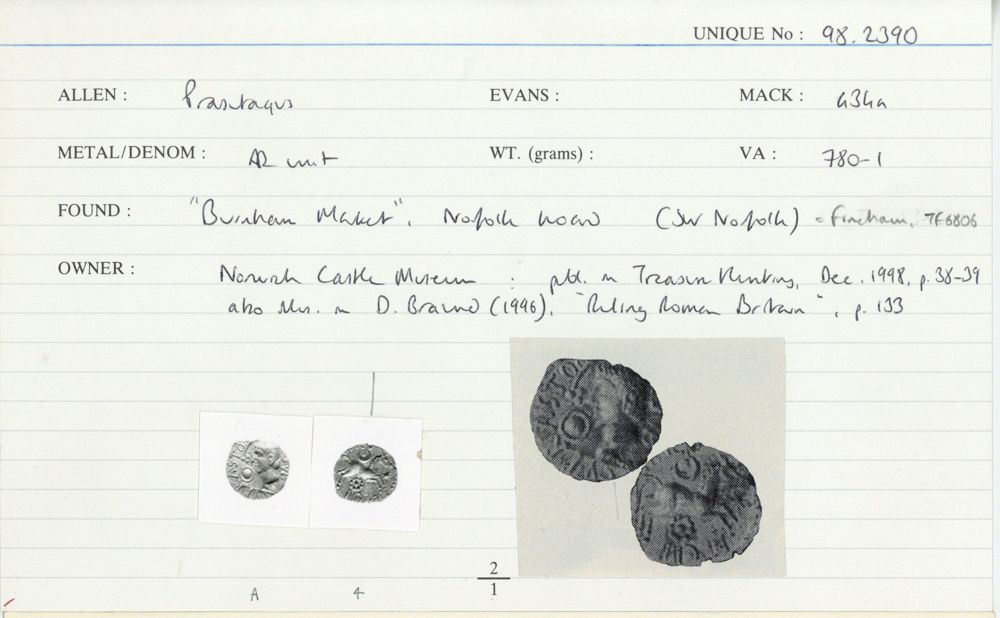 UNIQUE No : 98.2390
ALLEN : Prasutagus EVANS : MACK : 434a
METAL/DENOM : AR unit WT. (grams) : VA : 780-1
FOUND : "Burnham Market", Norfolk hoard (SW Norfolk) = Fincham, TF6806
OWNER : Norwich Castle Museum : pbd. in Treasure Hunting, Dec. 1998, p. 38-39
also illus. in D. Braund (1996), "Ruling Roman Britain", p. 133
2
1
A 4